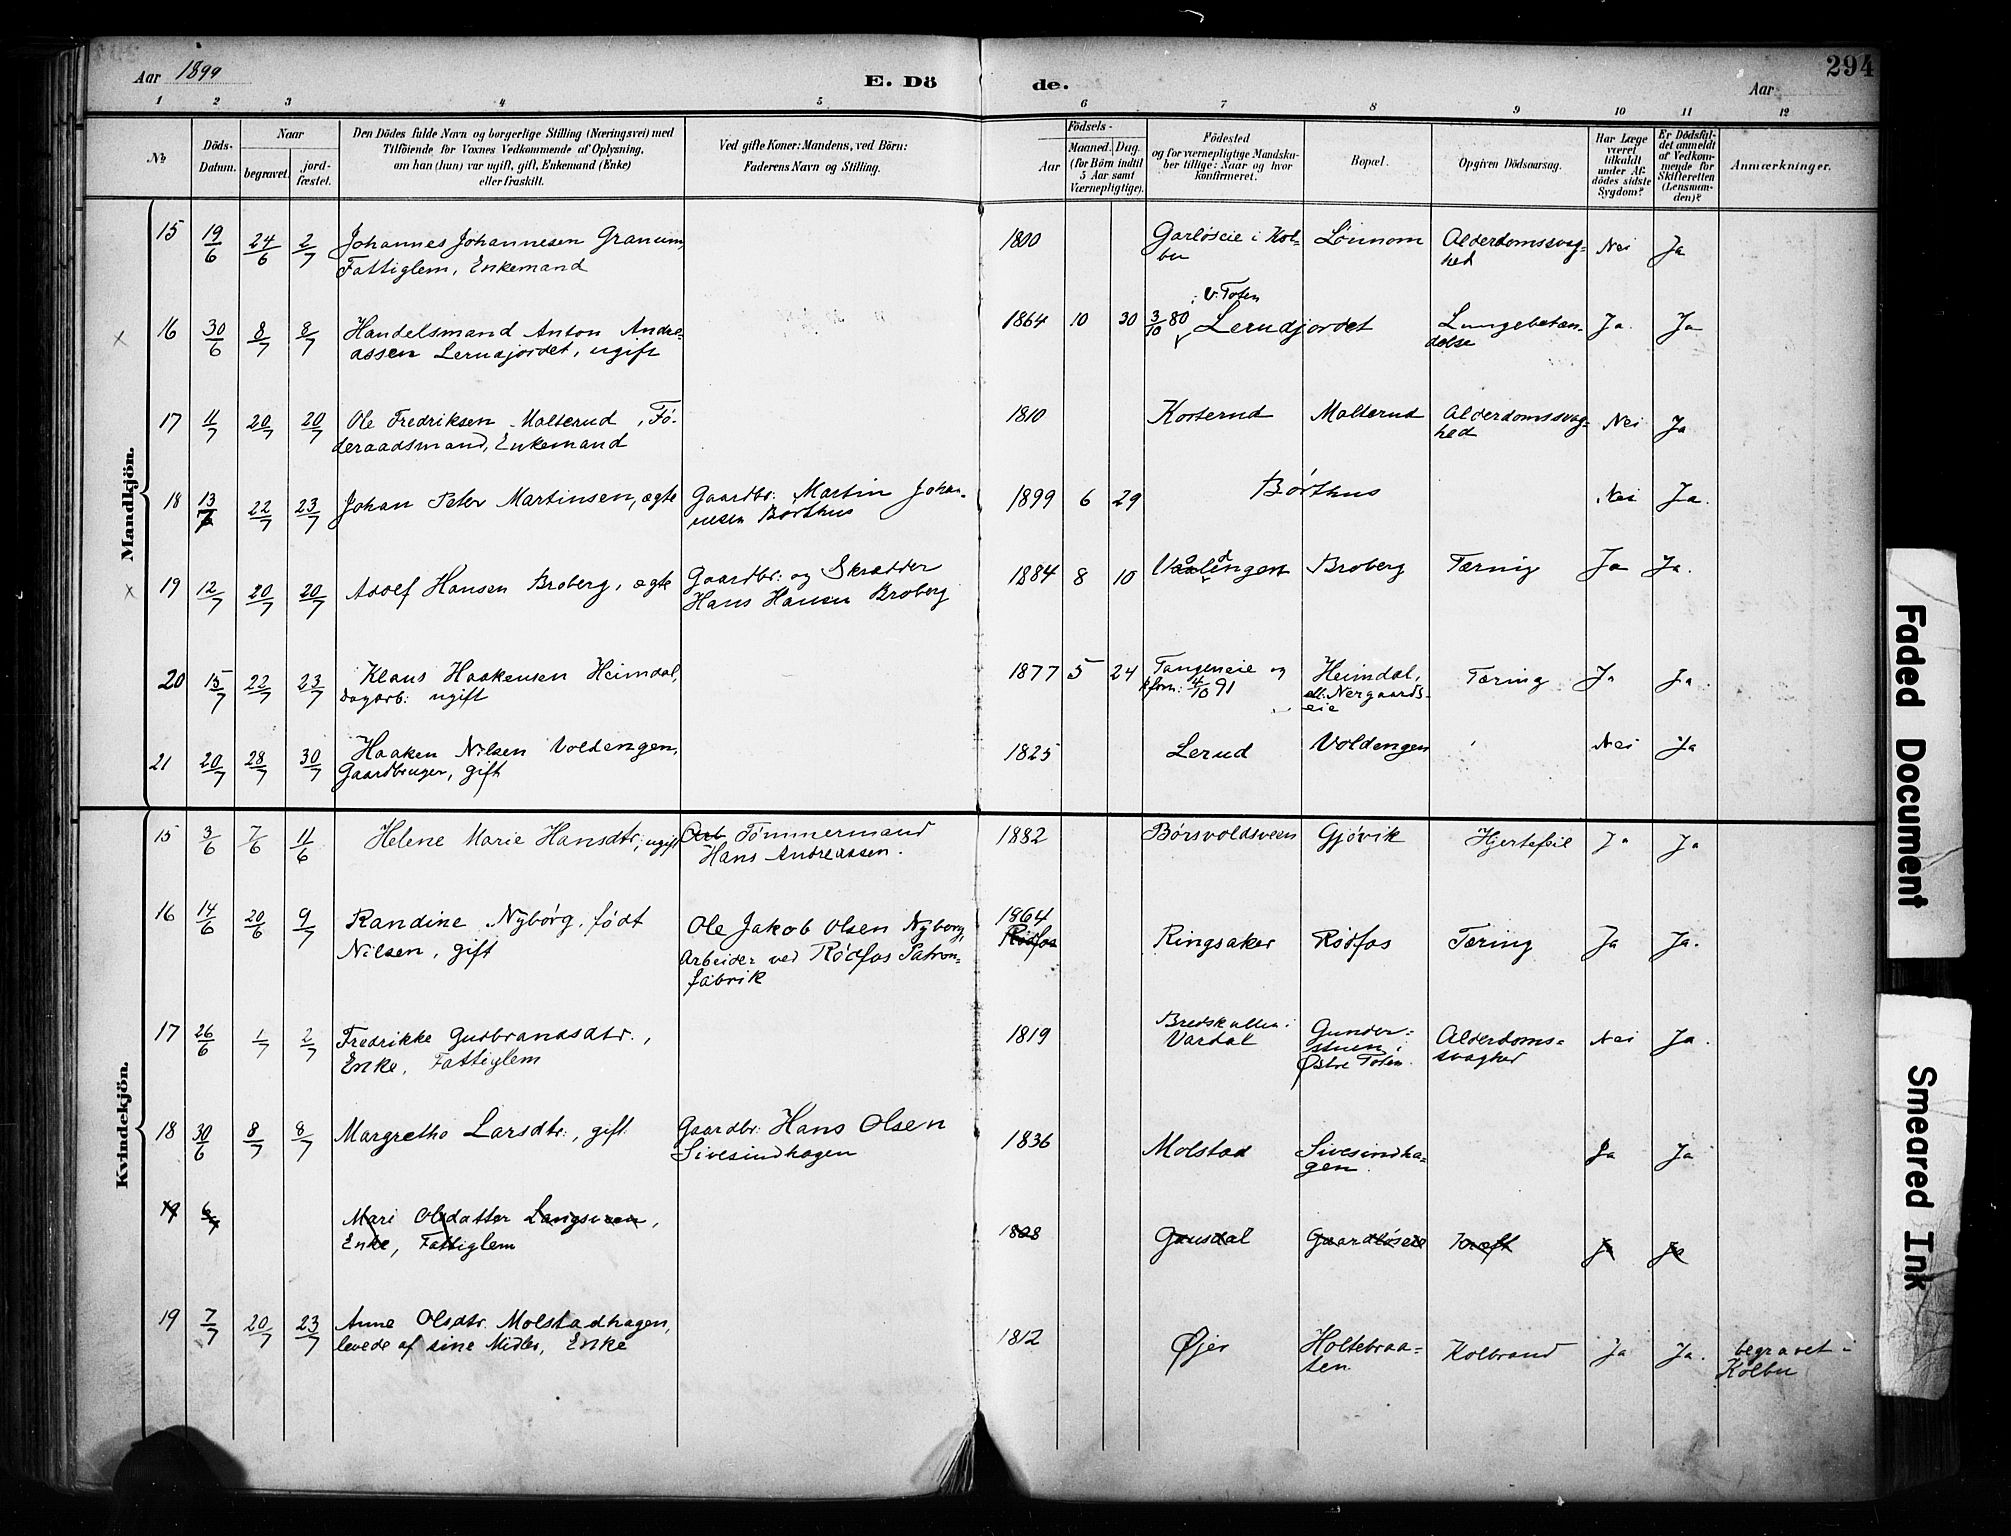 Aar 1899
E. Dö
de.
Aar
294
1 2 3 4 5 6 7 8 9 10 11 12
No
Döds-
Datum.
Naar
begravet.
jord-
fæstet.
Den Dödes fulde Navn og borgerlige Stilling (Næringsvei) med
Tilföiende for Voxnes Vedkommende af Oplysning,
om han (hun) var ugift, gift, Enkemand (Enke)
eller fraskilt.
Ved gifte Koner: Mandens, ved Börn:
Faderens Navn og Stilling.
Födsels-
Aar
Maaned.
Dag.
(for Börn indtil
5 Aar samt
Værnepligtige).
Födested
og for værnepligtige Mandsku-
ber tillige: Naar og hvor
konfirmeret.
Bopæl.
Opgiven Dödsaarsag.
Har Læge
været
tilkaldt
under Af-
dödes sidste
Sygdom?
Er Dödsfal-
det anmeldt
af Vedkom-
mende for
Skifteretten
(Lensman-
den)?
Anmærkninger.
Mandkjön.
15 19/6 24/6 2/7 Johannes Johannesen Granum, 1800 Garløseie i Kol- Lønnom Alderdomssvag- Nei Ja
Fattiglem, Enkemand bu hed
V. Toten
16 30/6 8/7 8/7 Handelsmand Anton Andre- 1864 10 30 3/10 80 Lerudjordet Lungebetæn- Ja Ja
assen Lerudjordet, ugift delse
17 11/7 20/7 20/7 Ole Fredriksen Malterud, Fø- 1810 Kosterud Malterud Alderdomssvag- Nei Ja
deraadsmand, Enkemand hed
18 13/7 22/7 23/7 Johan Peter Martinsen, ægte Gaardbr: Martin Johan- 1899 6 29 Børthus Nei Ja.
nesen Børthus
19 12/7 20/7 20/7 Adolf Hansen Broberg, ægte Gaardbr: og Skrædder 1884 8 10 Broberg Tæring Ja Ja.
Hans Hansen Broberg
20 15/7 22/7 23/7 Klaus Haakensen Heimdal, 1877 5 24 Tangeneie og Heimdal, Tæring Ja Ja
Dagarb: ugift kfirm: 4/10 91 ell. Nergaards-
eie
21 20/7 28/7 30/7 Haaken Nilsen Voldengen, 1825 Lerud Voldengen Nei Ja
Gaardbruger, gift
Kvindekjön.
15 3/6 7/6 11/6 Helene Marie Hansdtr, ugift Arb Tømmermand 1882 Børsvoldsveen Gjøvik Hjertefeil Ja Ja
Hans Andreassen.
16 14/6 20/6 9/7 Randine Nyborg, født Ole Jakob Olsen Nyborg, 1864 Rødfos Ringsaker Rødfos Tæring Ja Ja.
Nilsen, gift Arbeider ved Rødfos Patron-
fabrik
17 26/6 1/7 2/7 Fredrikke Gudbrandsdtr., 1819 Bredskallen i Gunder- Alderdoms- Nei Ja.
Enke, Fattiglem Vardal stuen i svaghed
Østre Toten.
18 30/6 8/7 8/7 Margrethe Larsdtr., gift Gaardbr: Hans Olsen 1836 Molstad Sivesindha- Ja Ja
Sivesindhagen gen
19 6/7 Mari Olsdatter Langsveen, 1808 Gausdal Gaardløseie Kræft Ja Ja
Enke, Fattiglem
19 7/7 20/7 23/7 Anne Olsdtr. Molstadhagen, 1812 Øjer Holtebraa- Kolbrand Ja Ja. begravet i
levede af sine Midler, Enke ten Kolbu
Faded Document
Smeared Ink